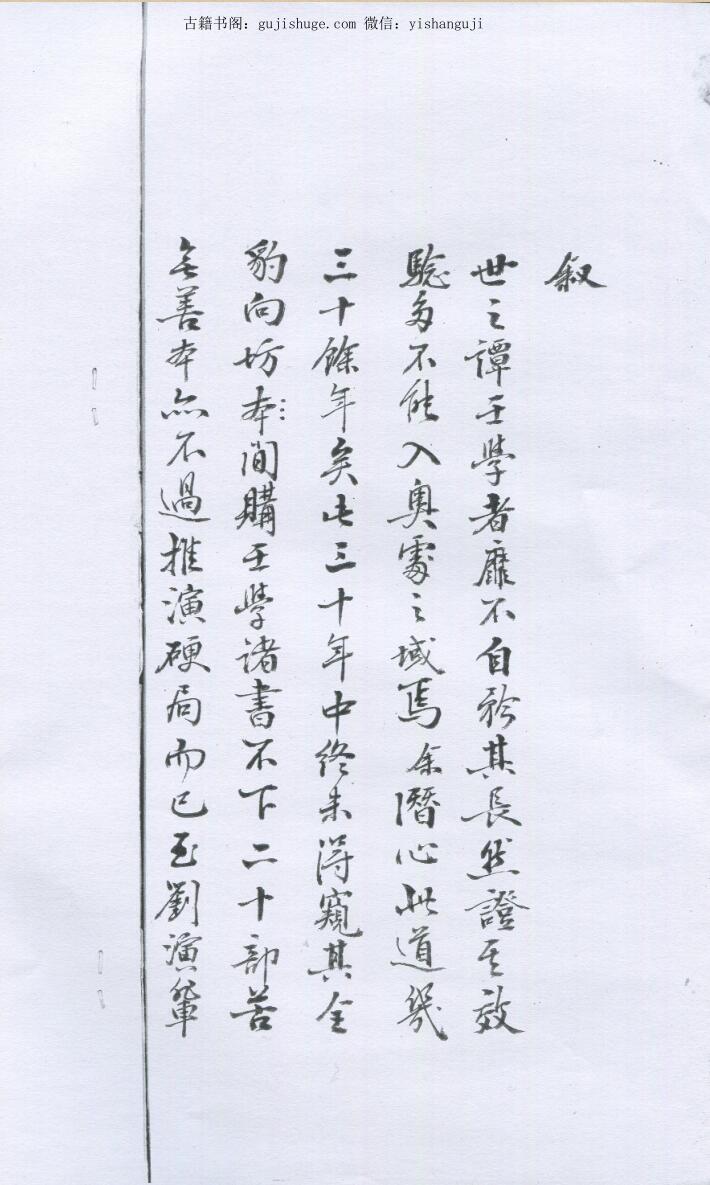 古籍书阁：gujishuge.com 微信：yishanguji
叙
世之譚壬學者靡不自矜其長然證其效
驗多不能入奥窔之域焉余潛心此道幾
三十餘年矣此三十年中終未得窺其全
豹向坊本間購壬學諸書不下二十部苦
無善本亦不過推演硬局而已至劉演輩